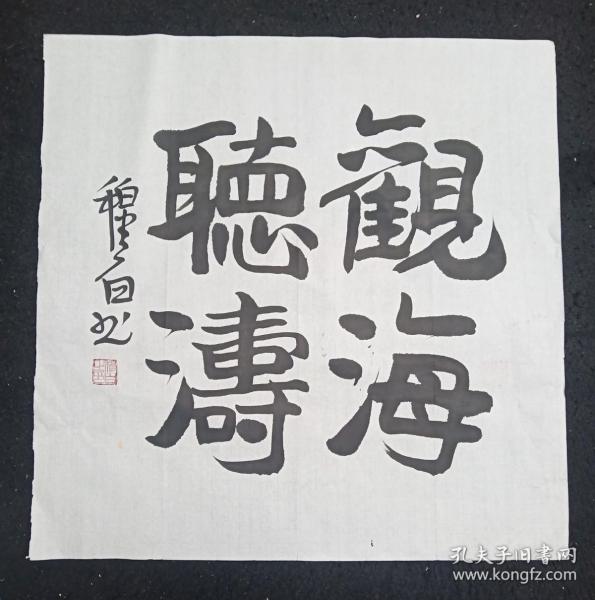 觀海
聽濤
孔夫子旧书网
www.kongfz.com